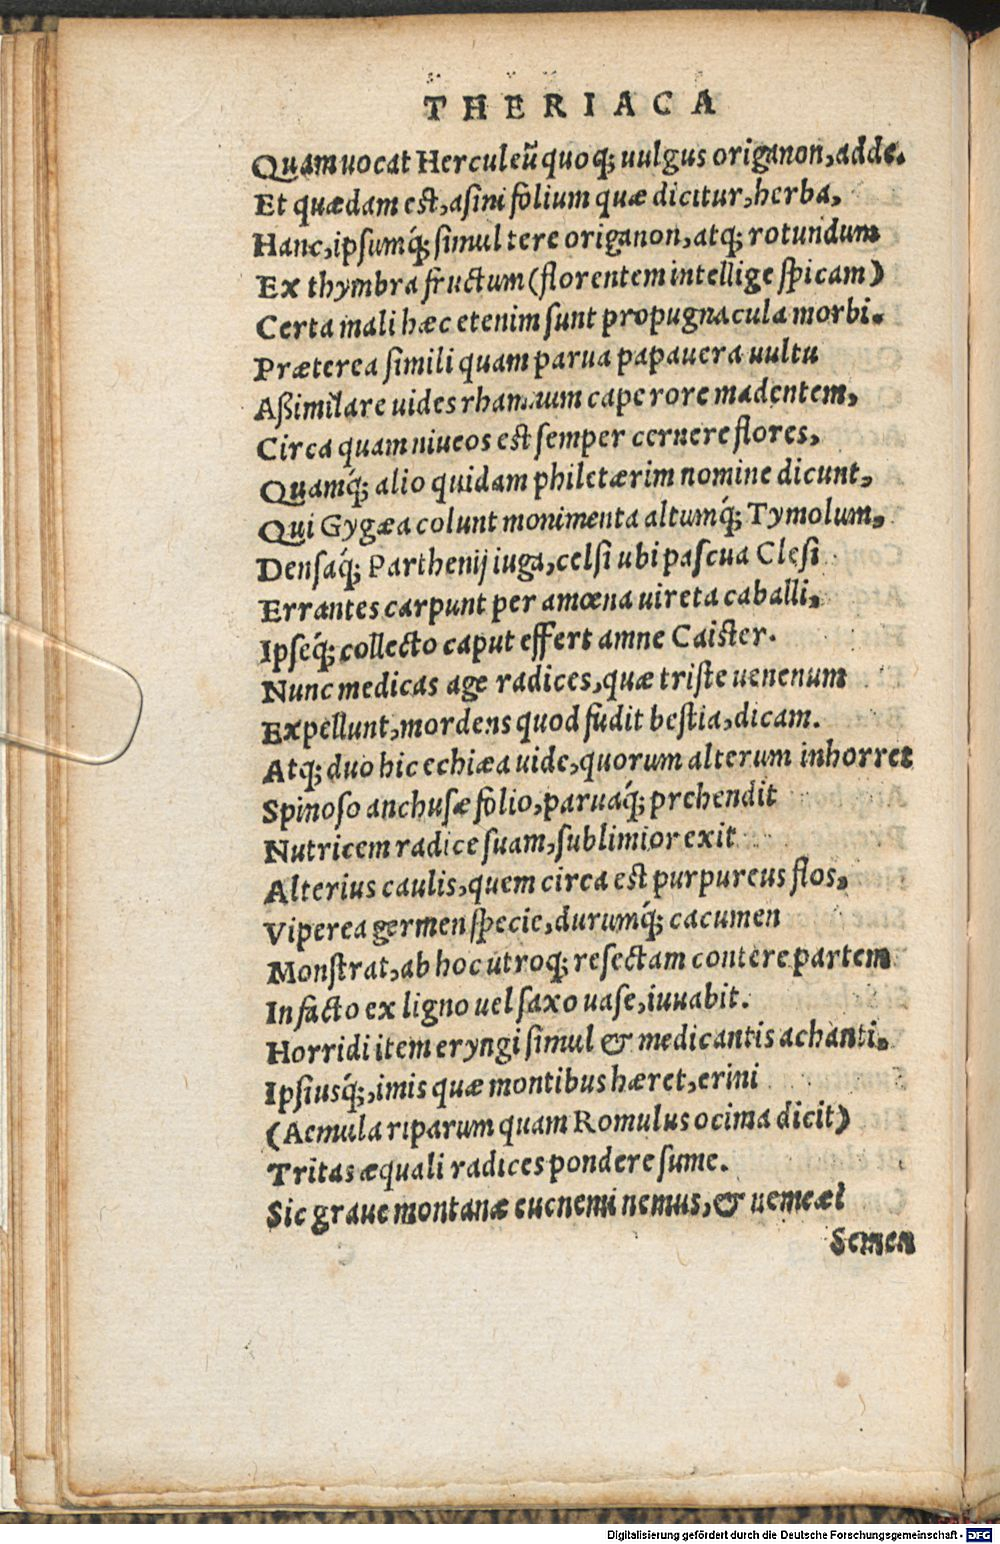 THERIACA
Quam uocat Herculeũ quoq; uulgus origanon, adde.
Et quædam est, asini folium quæ dicitur, herba,
Hanc, ipsumq́; simul tere origanon, atq; rotundum
Ex thymbra fructum (florentem intellige spicam)
Certa mali hæc etenim sunt propugnacula morbi.
Præterea simili quam parua papauera uultu
Aßimilare uides rhamnum cape rore madentem,
Circa quam niueos est semper cernere flores,
Quamq́; alio quidam philetærim nomine dicunt,
Qui Gygæa colunt monimenta altumq́; Tymolum,
Densaq́; Parthenij iuga, celsi ubi pascua Clesi
Errantes carpunt per amœna uireta caballi,
Ipseq́; collecto caput effert amne Caister.
Nunc medicas age radices, quæ triste uenenum
Expellunt, mordens quod fudit bestia, dicam.
Atq; duo hic echiæa uide, quorum alterum inhorret
Spinoso anchusæ folio, paruaq́; prehendit
Nutricem radice suam, sublimior exit
Alterius caulis, quem circa est purpureus flos,
Viperea germen specie, durumq́; cacumen
Monstrat, ab hoc utroq; resectam contere partem
In facto ex ligno uel saxo uase, iuuabit.
Horridi item eryngi simul & medicantis achanti,
Ipsiusq́;, imis quæ montibus hæret, erini
(Aemula riparum quam Romulus ocima dicit)
Tritas æquali radices pondere sume.
Sic graue montanæ eucnemi nemus, & nemeæi
Semen
Digitalisierung gefördert durch die Deutsche Forschungsgemeinschaft - DFG